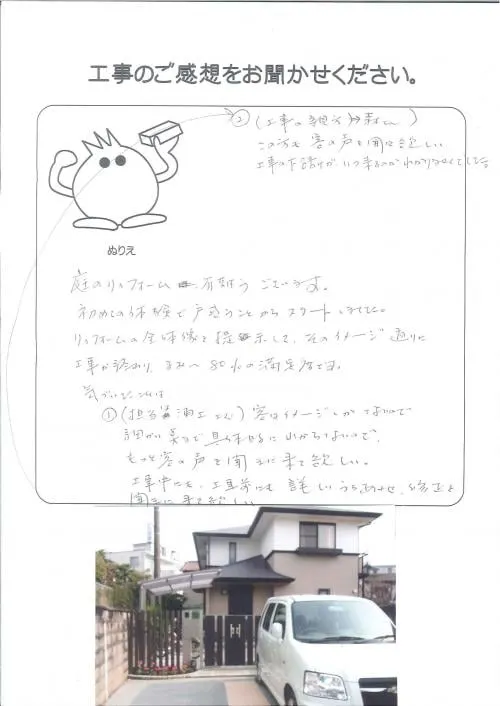 工事のご感想をお聞かせください。
② (工事の
この方も客の声を聞いて欲しい
工事の下請けがいつ来るのかわかりませんでした。
ぬりえ
庭のリフォーム 有難うございます。
初めての体験で戸惑うことからスタートしました。
リフォームの全体像を提示して、そのイメージ通りに
工事が終わり、まぁ〜80%の満足度です。
気づいたことは
① (担当 さん) 客はイメージしかってないので
細かい具体的にわからないので、
もっと客の声を聞きに来て欲しい。
工事中にも、工事前にも詳しい打ち合わせ、修正を
聞きに来て欲しい